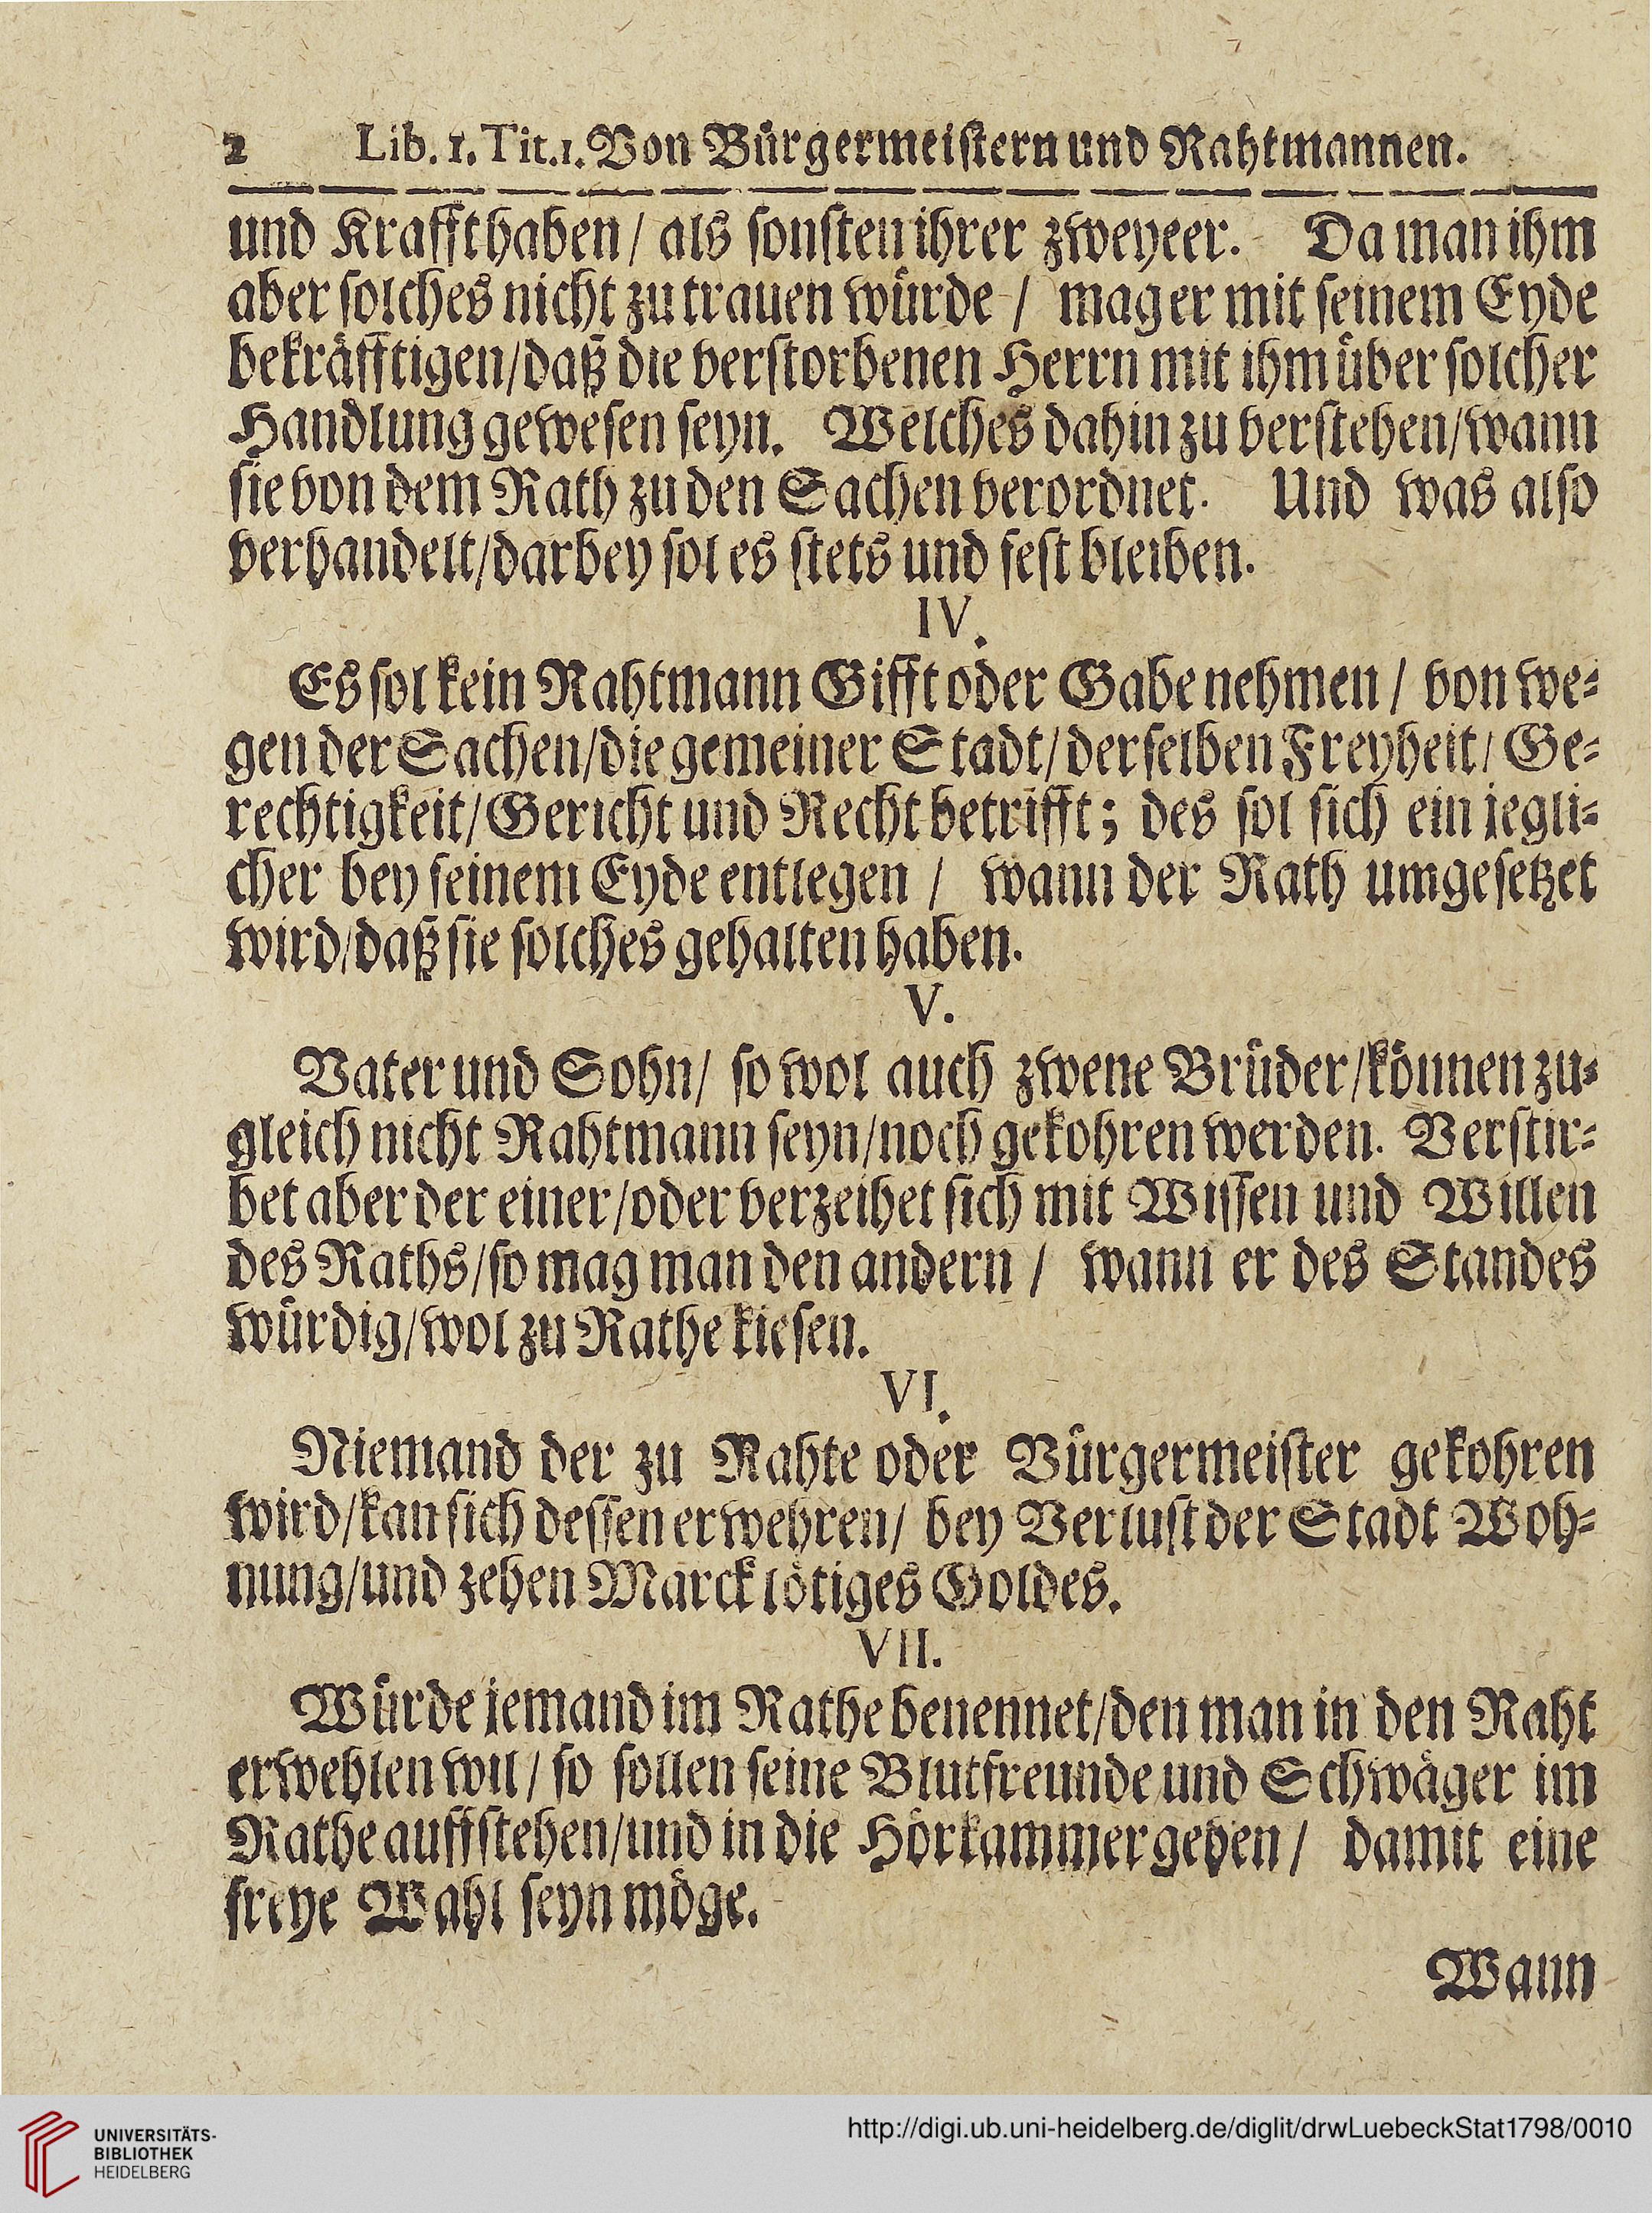 2 Lib. 1. Tit. 1. Von Bürgermeistern und Rahtmannen.
und Krafft haben / als sonsten ihrer zweyeer. Da man ihm
aber solches nicht zutrauen würde / mag er mit seinem Eyde
bekräfftigen / daß die verstorbenen Herrn mit ihm über solcher
Handlung gewesen seyn. Welches dahin zu verstehen / wann
sie von dem Rath zu den Sachen verordnet. Und was also
verhandelt / darbey sol es stets und fest bleiben.
IV.
Es sol kein Rahtmann Gifft oder Gabe nehmen / von we-
gen der Sachen / die gemeiner Stadt / derselben Freyheit / Ge-
rechtigkeit / Gericht und Recht betrifft; des sol sich ein jegli-
cher bey seinem Eyde entlegen / wann der Rath umgesetzet
wird / daß sie solches gehalten haben.
V.
Vater und Sohn / so wol auch zwene Brüder / können zu-
gleich nicht Rahtmann seyn / noch gekohren werden. Verstir-
bet aber der einer / oder verzeihet sich mit Wissen und Willen
des Raths / so mag man den andern / wann er des Standes
würdig / wol zu Rathe kiesen.
VI.
Niemand der zu Rahte oder Bürgermeister gekohren
wird / kan sich dessen erwehren / bey Verlust der Stadt Woh-
nung / und zehen Marck lötiges Goldes.
VII.
Würde jemand im Rathe benennet / den man in den Raht
erwehlen wil / so sollen seine Blutfreunde und Schwäger im
Rathe auffstehen / und in die Hörkammer gehen / damit eine
freye Wahl seyn möge.
Wann
UNIVERSITÄTS-
BIBLIOTHEK
HEIDELBERG
http://digi.ub.uni-heidelberg.de/diglit/drwLuebeckStat1798/0010